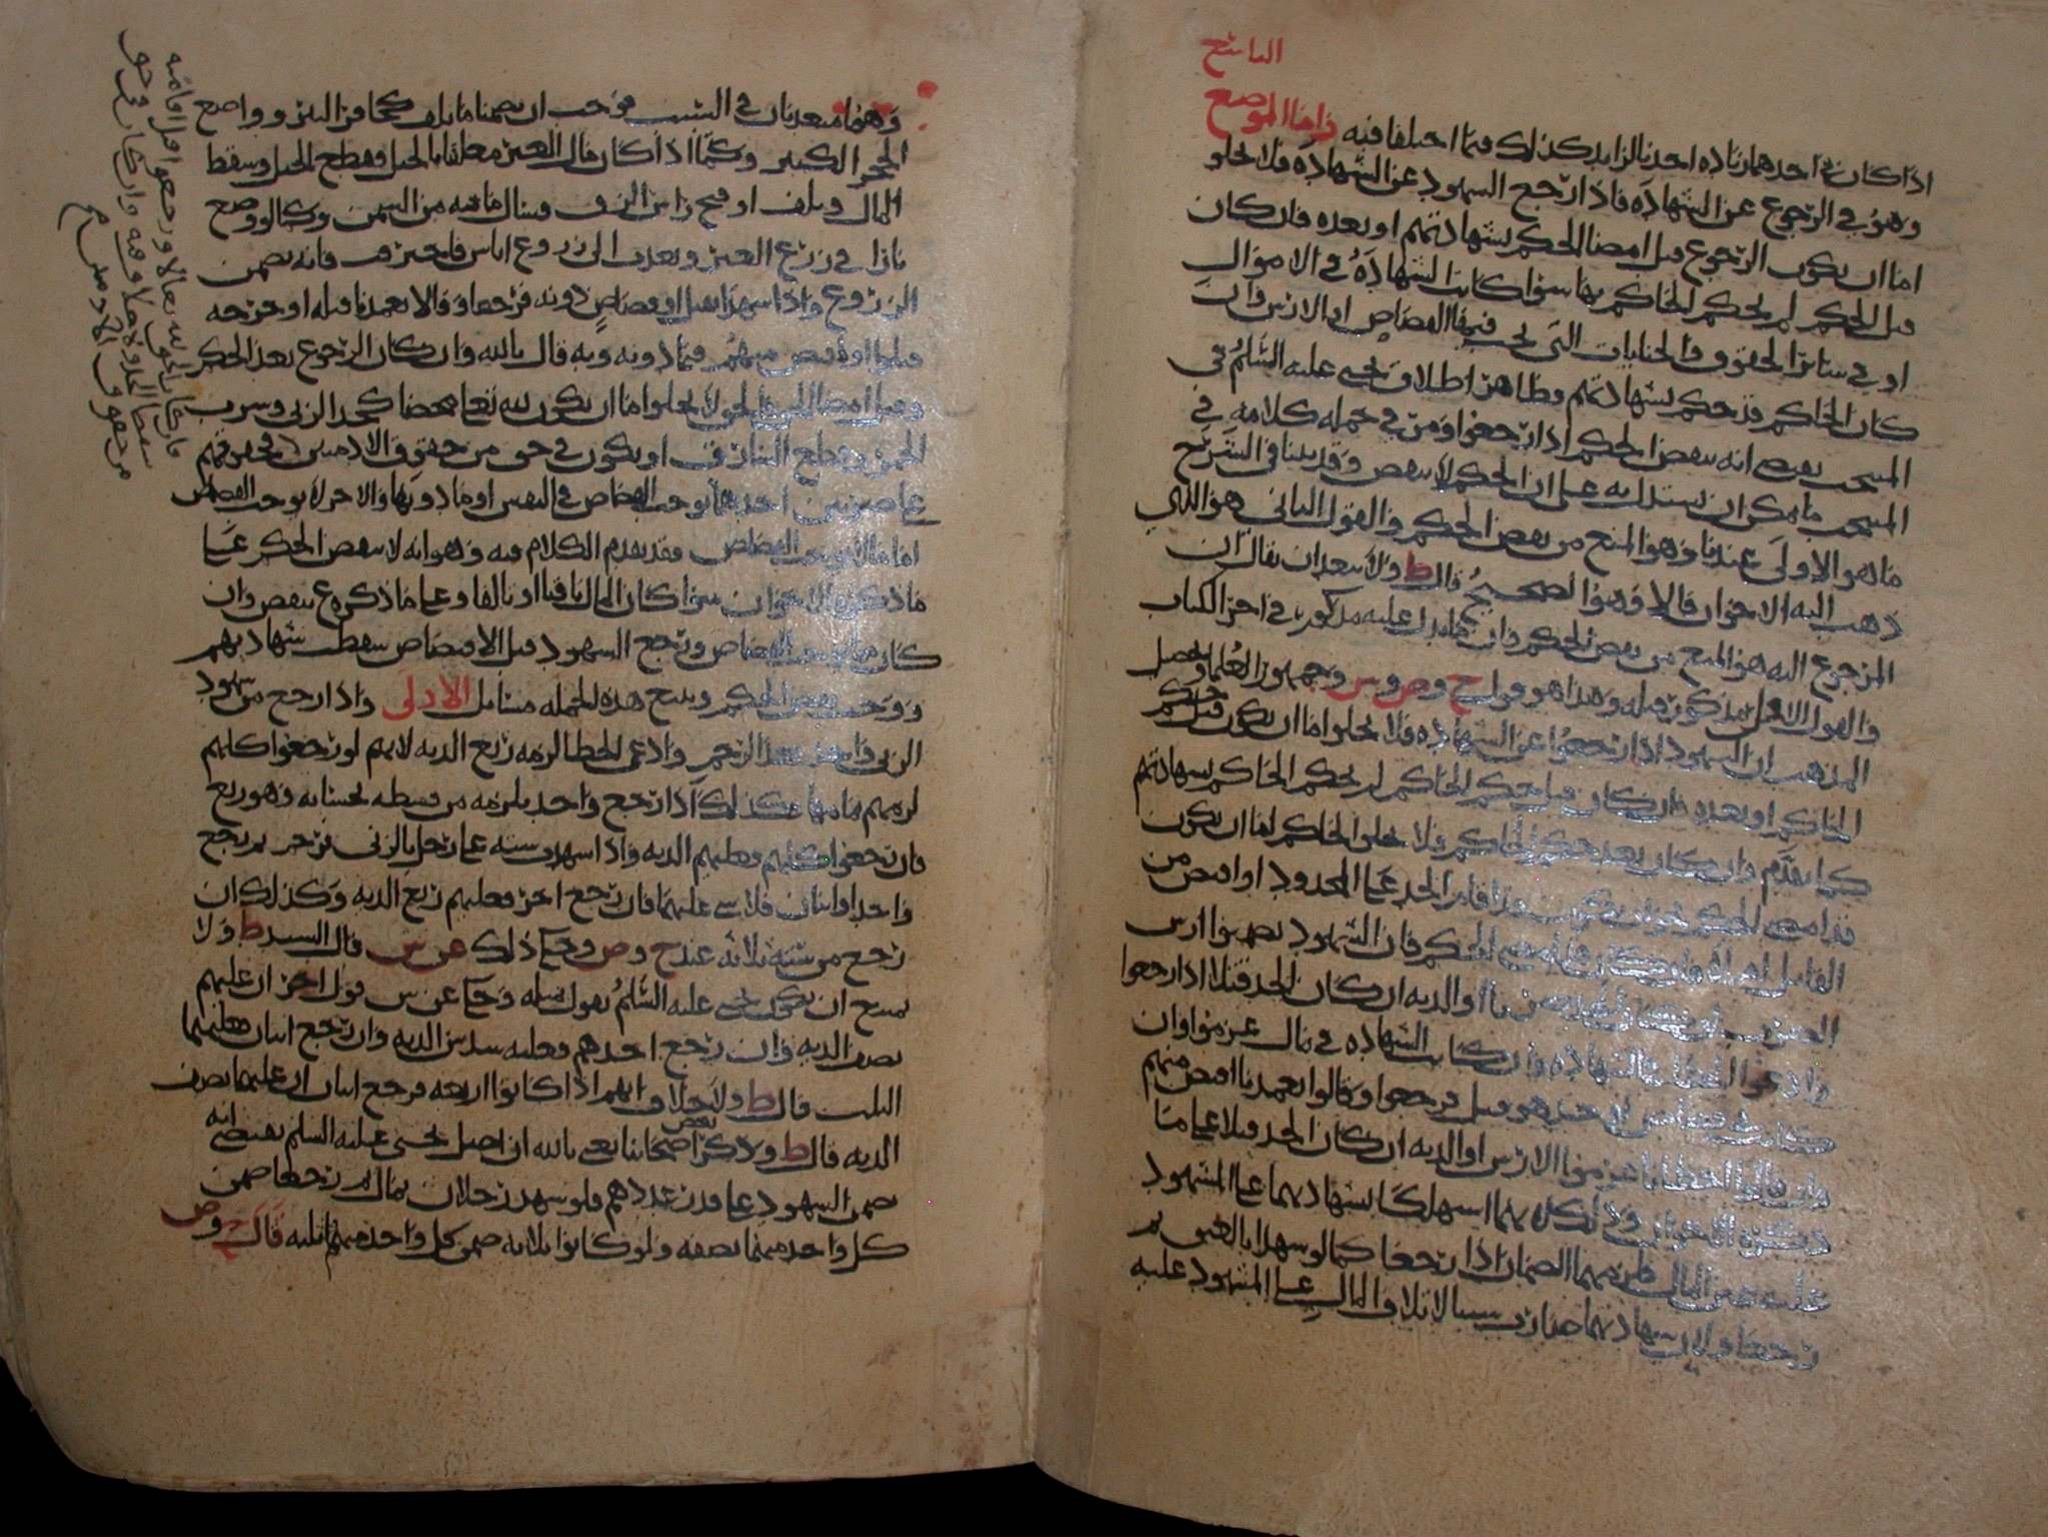 التاسع
اذا كان في احدهما زياده اخذ بالزايد كذلك فيما اختلفا فيه واما الموضع
وهو في الرجوع عن الشهادة فاذا رجع الشهود عن الشهادة فلا يخلو
اما ان يكون الرجوع قبل امضا الحكم بشهادتهم او بعده فان كان
قبل الحكم لم يحكم الحاكم بها سوا كانت الشهادة في الاموال
او في سائر الحقوق والجنايات التي يجب فيها القصاص او الارش وان
كان الحاكم قد حكم بشهادتهم وظاهر اطلاق يحيى عليه السلم في
المنتخب يقتضي انه ينقض الحكم اذا رجعوا ومر في جمله كلامه في
المنتخب ما يمكن ان يستدل به على ان الحكم لا ينقض وقد بينا في الشرح
ما هو الاولى عندنا وهو المنع من نقض الحكم والقول الثاني هو الذي
ذهب اليه الاخوان قالا وهو الصحيح قال ط ولا يبعد ان يقال ان
المرجوع اليه هو المنع من نقض الحكم وان ما يدل عليه مذكور في اخر الكتاب
والقول الاول مذكور قبله وهذا هو قول ح وص وس وجمهور العلما وتحصيل
المذهب ان الشهود اذا رجعوا عن الشهاده فلا يخلو اما ان يكون قبل حكم
الحاكم او بعده فان كان قبل حكم الحاكم لم يحكم الحاكم بشهادتهم
كما تقدم وان كان بعد حكم الحاكم فلا يخلو الحاكم اما ان يكون
قد امضى الحكم نحو ان يكون قد اقام الحد على المحدود او اقتص من
القاتل ام لا فان كان قد امضى الحكم فان الشهود يضمنوا ارش
الضرب ان كان الحد ضربا او الديه ان كان الحد قتلا اذا رجعوا
وادعوا الخطا في الشهاده وان كانت الشهاده في مال غرموا وان
كانت في قصاص او حد هو قتل فرجعوا وقالوا تعمدنا اقتص منهم
وان قالوا اخطانا غرموا الارش او الديه ان كان الحد قتلا على ما
ذكره الاخوان وذلك لانهما استهلكا بشهادتهما على المشهود
عليه عين المال فلزمهما الضمان اذا رجعا كما لو شهدا بالعتق ثم
رجعا ولان شهادتهما صارت سببا لاتلاف المال على المشهود عليه
وهما متعديان في السبب فوجب ان يضمنا ما تلف كحافر البئر وواضع
الحجر الكبير وكما اذا كان مال الغير معلقا بالحبل فقطع الحبل وسقط
المال وتلف او فتح راس الزق فسال ما فيه من السمن وكما لو وضع
نارا في زرع الغير وتعدت الى زروع الناس فاحترق فانه يضمن
الزروع واذا شهدا بقتل او قصاص دونه فرجعا وقالا تعمدنا قتله او جرحه
قتلا او اقتص منهم فيما دونه وبه قال مالك وان كان الرجوع بعد الحكم
وقبل امضا الحكم فالحق لا يخلو اما ان يكون لله تعالى محضا كحد الزنى وشرب
الخمر وقطع السارق او يكون في حق من حقوق الادميين فحقوقهم
على ضربين احدهما يوجب القصاص في النفس او ما دونها والاخر لا يوجب القصاص
اما ما لا يوجب القصاص فقد تقدم الكلام فيه وهو انه لا ينقض الحكم على
ما ذكره الاخوان سوا كان المال باقيا او تالفا وعلى ما ذكره ع ينقض وان
كان مما يوجب القصاص ورجع الشهود قبل الاقتصاص سقطت شهادتهم
ووجب نقض الحكم ويتبع هذه الجمله مسايل الاولى واذا رجع من شهود
الزنى واحد بعد الرجم وادعى الخطا لزمه ربع الديه لانهم لو رجعوا كلهم
لزمهم تمامها فكذلك اذا رجع واحد يلزمه من قسطه بحسابه وهو ربع
فان رجعوا كلهم فعليهم الديه واذا شهد سته على رجل بالزنى فرجم ثم رجع
واحد او اثنان فلا شي عليهما فان رجع اخر فعليهم ربع الديه وكذلك ان
رجع من سته ثلاثه عند ح وص وحكى ذلك عن س قال السيد ط ولا
يمتنع ان يكون يحيى عليه السلم يقول بمثله وحكى عن س قول اخر ان عليهم
نصف الديه وان رجع احدهم فعليه سدس الديه وان رجع اثنان فعليهما
الثلث قال ط ولا خلاف انهم اذا كانوا اربعه فرجع اثنان ان عليهما نصف
الديه قال ط وذكر بعض اصحابنا يعني بالله ان اصل يحيى عليه السلم يقتضي انه
ضمن الشهود على قدر عددهم فلو شهد رجلان بمال ثم رجعا ضمن
كل واحد منهما نصفه ولو كانوا ثلاثه ضمن كل واحد منهم ثلثه قال ح وص